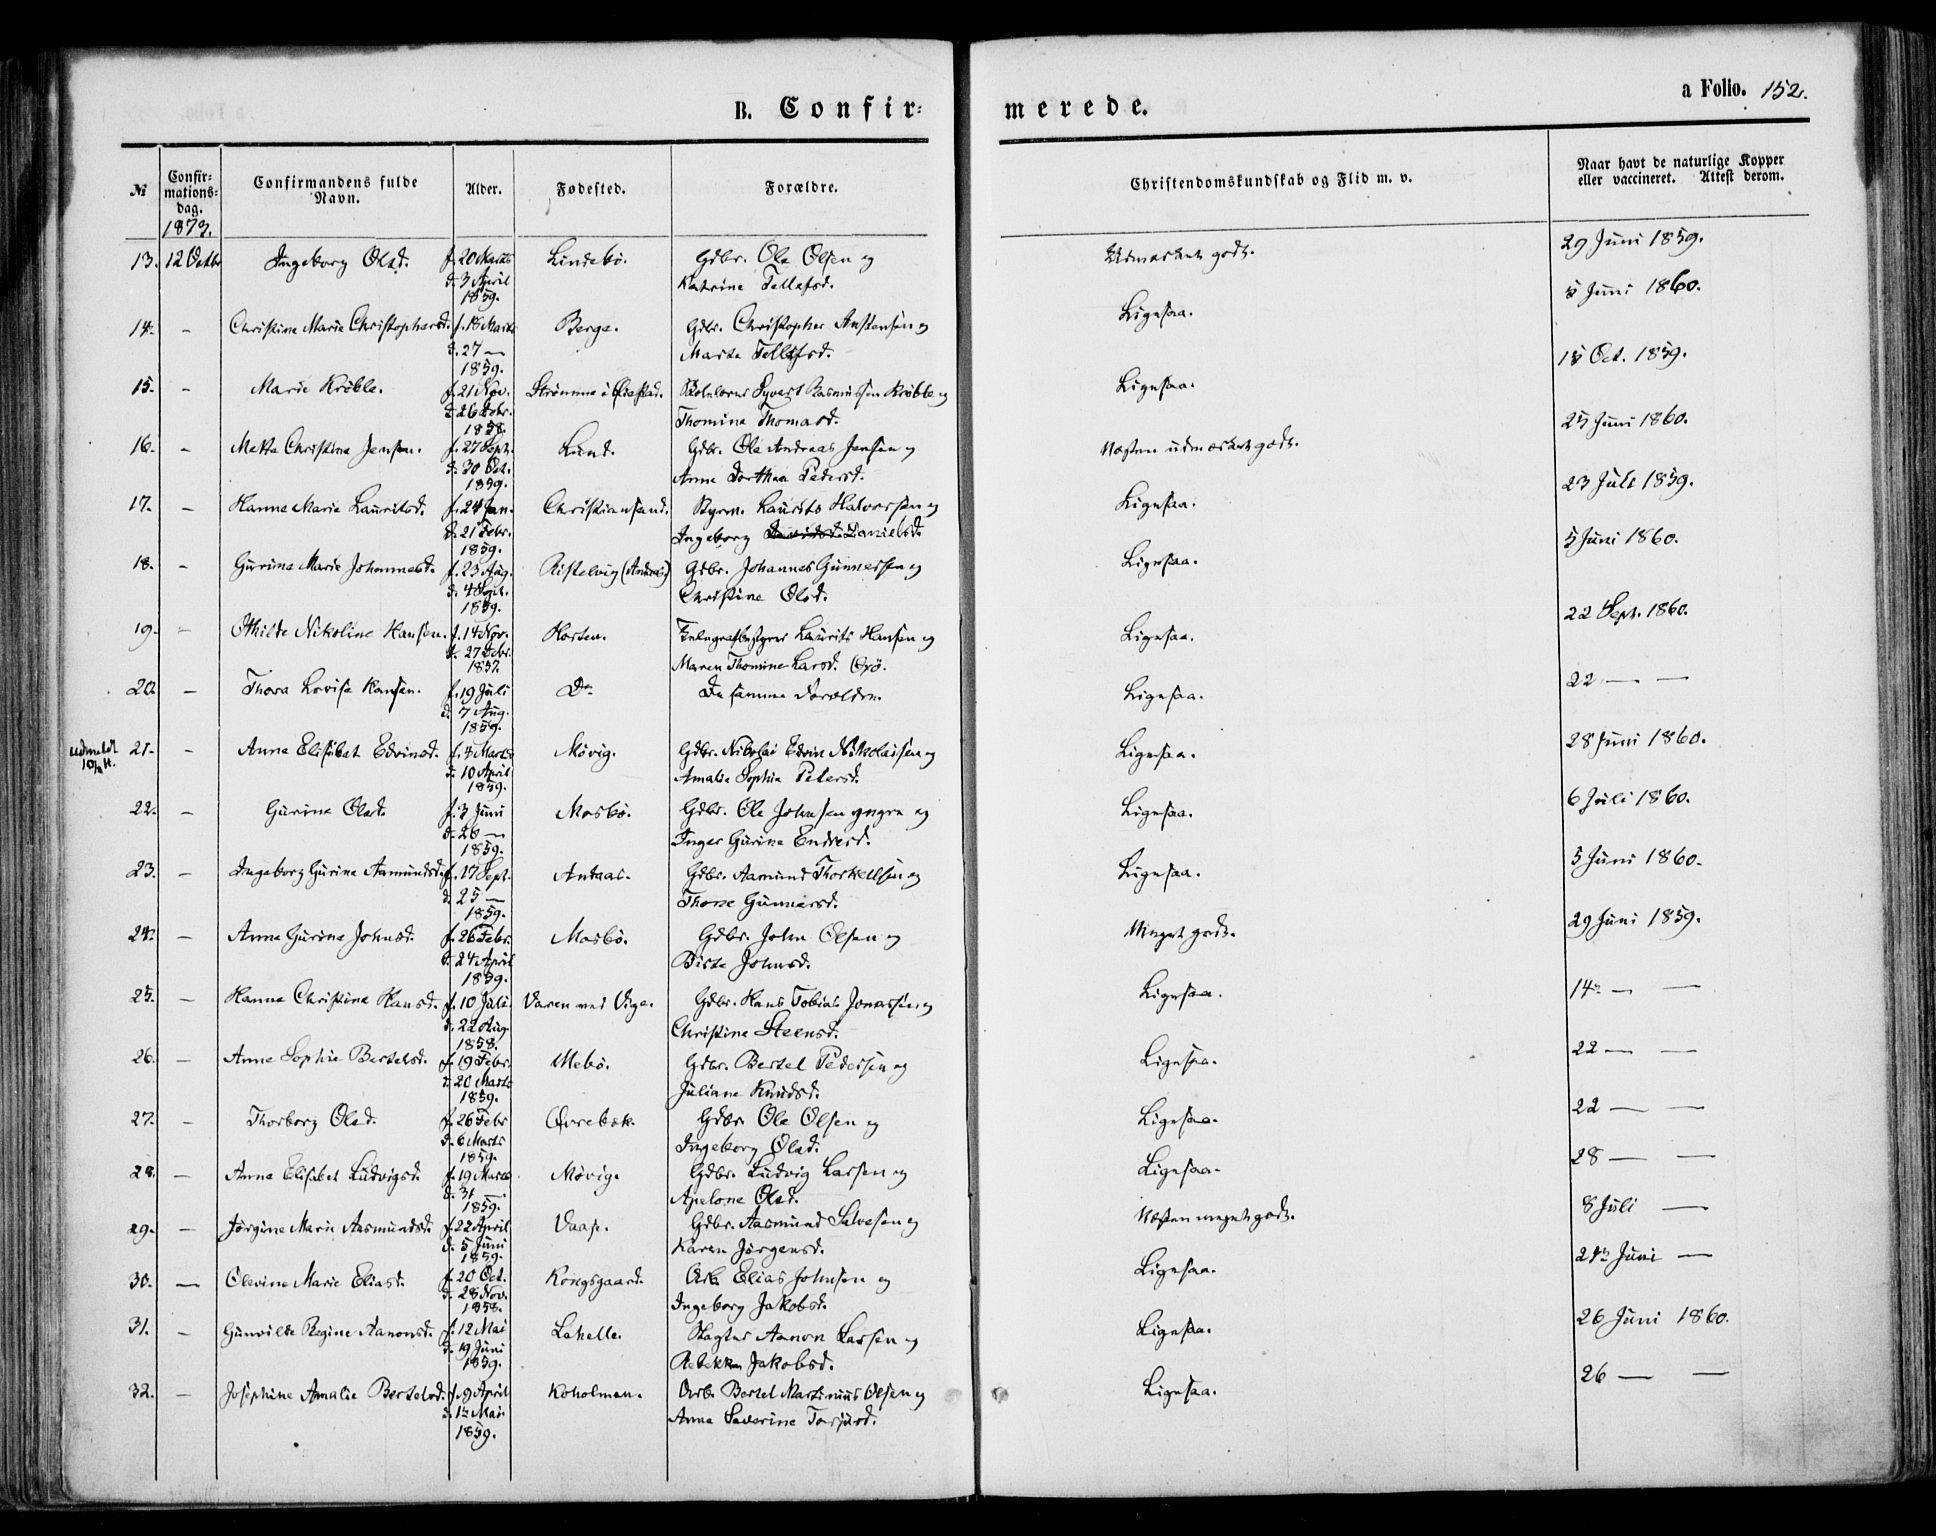 B. Confir-
merede.
a Folio. 152.
№
Confir-
mations-
dag.
1873.
Confirmandens fulde
Navn.
Alder.
Fødested.
Forældre.
Christendomskundskab og Flid m. v.
Naar havt de naturlige Kopper
eller vaccineret. Attest derom.
13. 12 Octbr Ingeborg Olsd. f. 20 Marts Lindebö. Gdbr. Ole Olsen og Udmærket godt. 29 Juni 1859.
d. 3 April Katrine Tellefsd.
1859.
14. - Christine Marie Christophersd. f. 18 Marts Berge. Gdbr. Christopher Anstensen og Ligesaa. 5 Juni 1860.
d. 27 — Marte Tellefsd.
1859.
15. - Marie Kröble. f. 21 Nov. Strömme i Oddernes Skolelærer Syvert Rasmussen Kröble og Ligesaa. 15 Oct. 1859.
d. 26 Debr. Thomine Thomasd.
1858.
16. - Mette Christine Jensen. f. 27 Sept. Lund. Gdbr. Ole Andreas Jensen og Næsten udmærket godt. 25 Juni 1860.
d. 30 Oct. Anne Dorthea Pedersd.
1859.
17. - Hanne Marie Lauritsd. f. 24 Jan. Christiansand. Styrm. Laurits Halvorsen og Ligesaa. 23 Juli 1859.
d. 21 Febr. Ingeborg Danielsd.
1859.
18. - Gurine Marie Johannesd. f. 23 Aug. Ristelvig (Andaas) Gdbr. Johannes Gunnersen og Ligesaa. 5 Juni 1860.
d. 4 Sept. Christine Olsd.
1859.
19. - Othilde Nikoline Hansen. f. 14 Nov. Horten. Telegrafbestyrer Laurits Hansen og Ligesaa. 22 Sept. 1860.
d. 27 Debr. Maren Thomine Larsd. Oxö.
1857.
20. - Thora Lovise Hansen. f. 19 Juli Do De samme Forældre. Ligesaa. 22 — —
d. 7 Aug.
1859.
udmeldt
21. - Anne Elisabet Edvinsd. f. 4 Marts Mövig. Gdbr. Nikolai Edvin Nikolaisen og Ligesaa. 28 Juni 1860.
d. 10 April Amalie Sophie Petersd.
1859.
22. - Gurine Olsd. f. 3 Juni Mosbö. Gdbr. Ole Johnsen yngre og Ligesaa. 6 Juli 1860.
d. 26 — Inger Gurine Endresd.
1859.
23. - Ingeborg Gurine Aamundsd. f. 17 Sept. Andaas. Gdbr. Aamund Thorkelsen og Ligesaa. 5 Juni 1860.
d. 25 — Thore Gunnarsd.
1859.
24. - Anne Gurine Johnsd. f. 26 Febr. Mosbö. Gdbr. John Olsen og Meget godt. 29 Juni 1859.
d. 24 April Birte Johnsd.
1859.
25. - Hanne Christine Hansd. f. 10 Juli Varen ved Vige. Gdbr. Hans Tobias Jonassen og Ligesaa. 14 — —
d. 22 Aug. Christine Steensd.
1858.
26. - Anne Sophie Bertelsd. f. 19 Febr. Mebö. Gdbr. Bertel Pedersen og Ligesaa. 22 — —
d. 20 Marts Juliane Knudsd.
1859.
27. - Thorborg Olsd. f. 26 Febr Övrebæk. Gdbr. Ole Olsen og Ligesaa. 22 — —
d. 6 Marts Ingeborg Olsd.
1859.
28. - Anne Elisabet Ludvigsd. f. 19 Marts Mövig. Gdbr. Ludvig Larsen og Ligesaa. 28 — —
d. 31 — Apelone Olsd.
1859.
29. - Jörgine Marie Aasmundsd. f. 22 April Vaase. Gdbr. Aasmund Salvesen og Næsten meget godt. 8 Juli —
d. 5 Juni Karen Jörgensd.
1859.
30. - Olevine Marie Eliasd. f. 20 Oct. Kongsgaard. Arb. Elias Johnsen og Ligesaa. 24 Juni —
d. 28 Nov. Ingeborg Jakobsd.
1858.
31. - Gunvilde Regine Aanonsd. f. 12 Mai Lahelle. Slagter Aanon Larsen og Ligesaa. 26 Juni 1860.
d. 19 Juni Rebekka Jakobsd.
1859.
32. - Josephine Amalie Bertelsd. f. 9 April Koholmen. Arb. Bertel Martinius Olsen og Ligesaa. 26 — —
d. 12 Mai Anne Severine Torjusd.
1859.